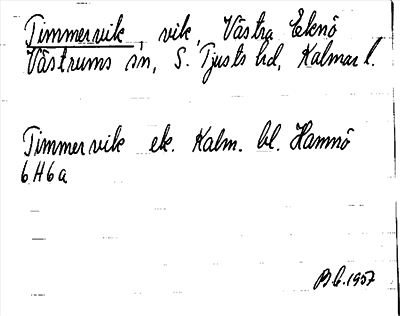 Timmervik, vik, Västra Eknö
Västrums sn, S. Tjusts hd, Kalmar l.
Timmervik ek. Kalm. bl. Hamnö
6H6a
1957